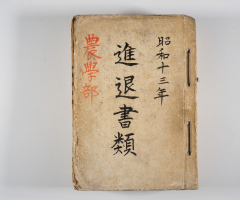 昭和十三年
進退書類
農學部